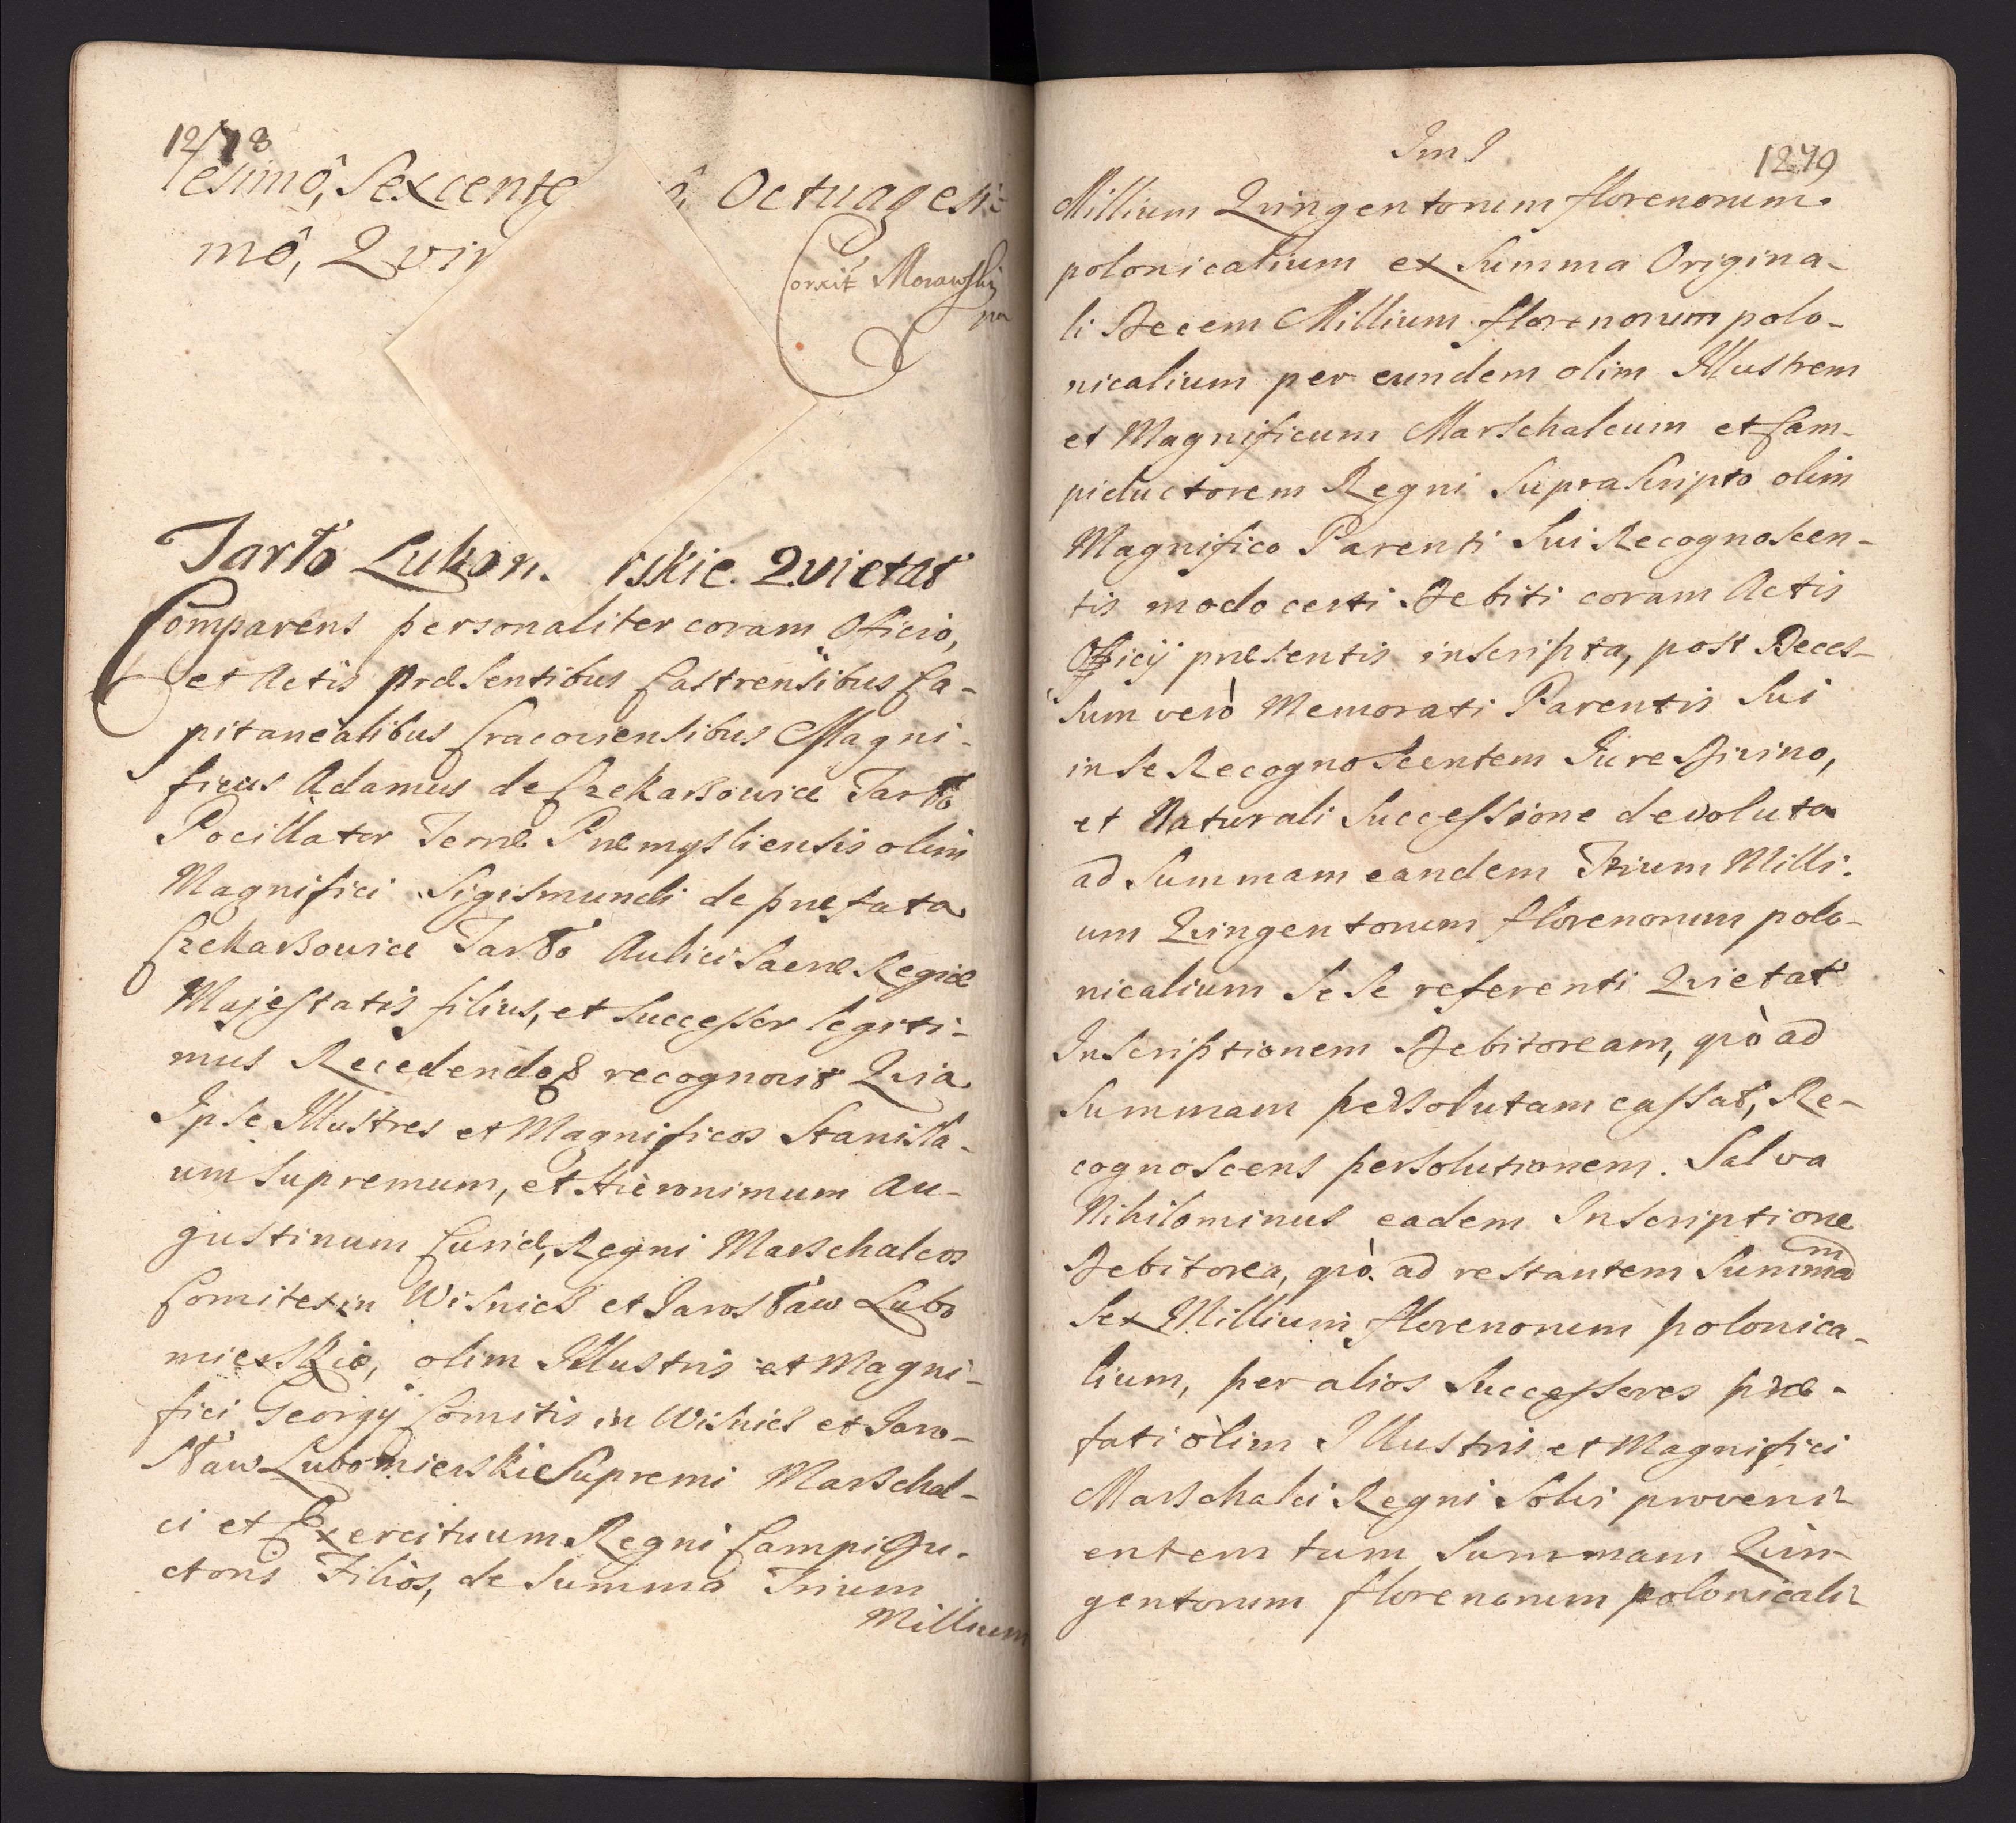 1278
lesimô, Sexcente ô, Octuagesi-
mô, Qvin
Corxit Morawski
pa
Tarło Lubom. rskie. Qvietat
Comparens personaliter coram Officio,
et Actis præsentibus Castrensibus Ca-
pitanealibus Cracoviensibus Magni-
ficus Adamus de Czekarzowice Tarło
Pocillator Terræ Præmysliensis olim
Magnifici Sigismundi de præfata
Czekarzowice Tarło Aulici Sacræ Regiæ
Majestatis filius, et Successor legiti-
mus Recedendo & recognovit Qvia
Ipse Illustres et Magnificos Stanisla-
um Supremum, et Hieronimum Au-
gustinum Curiæ, Regni Marschalcos
Comites in Wisnicz et Jarosław Lubo
mierskie, olim Illustris et Magni-
fici Georgÿ Comitis in Wisnicz et Jaro-
sław Lubomierskie Supremi Marschal-
ci et Exercituum Regni Campidu-
ctoris Filios, de Summa Trium
Millium
1279
Millium Qvingentorum florenorum
polonicalium ex Summa Origina-
li Decem Millium florenorum polo-
nicalium per eundem olim Illustrem
et Magnificum Marschalcum et Cam-
piductorem Regni Suprascripto olim
Magnifico Parenti Sui Recognoscen-
tis modo certi Debiti coram Actis
Officij præsentis inscripta, post Deces-
sum verò Memorati Parentis Sui
in se Recognoscentem Jure Divino,
et Naturali Successione devoluta
ad Summam eandem Trium Milli-
um Qvingentorum florenorum polo-
nicalium Sese referenti Qvietat
Inscriptionem Debitoream, qvò ad
Summam persolutam cassat, Re-
cognoscens persolutionem. Salva
Nihilominus eadem Inscriptione
Debitorea, qvò ad restantem Summam
Sex Millium florenorum polonica-
lium, per alios Successores præ-
fati òlim Illustris et Magnifici
Marschalci Regni Solvi proveni-
entem tum Summam Qvin-
gentorum florenorum polonicali-